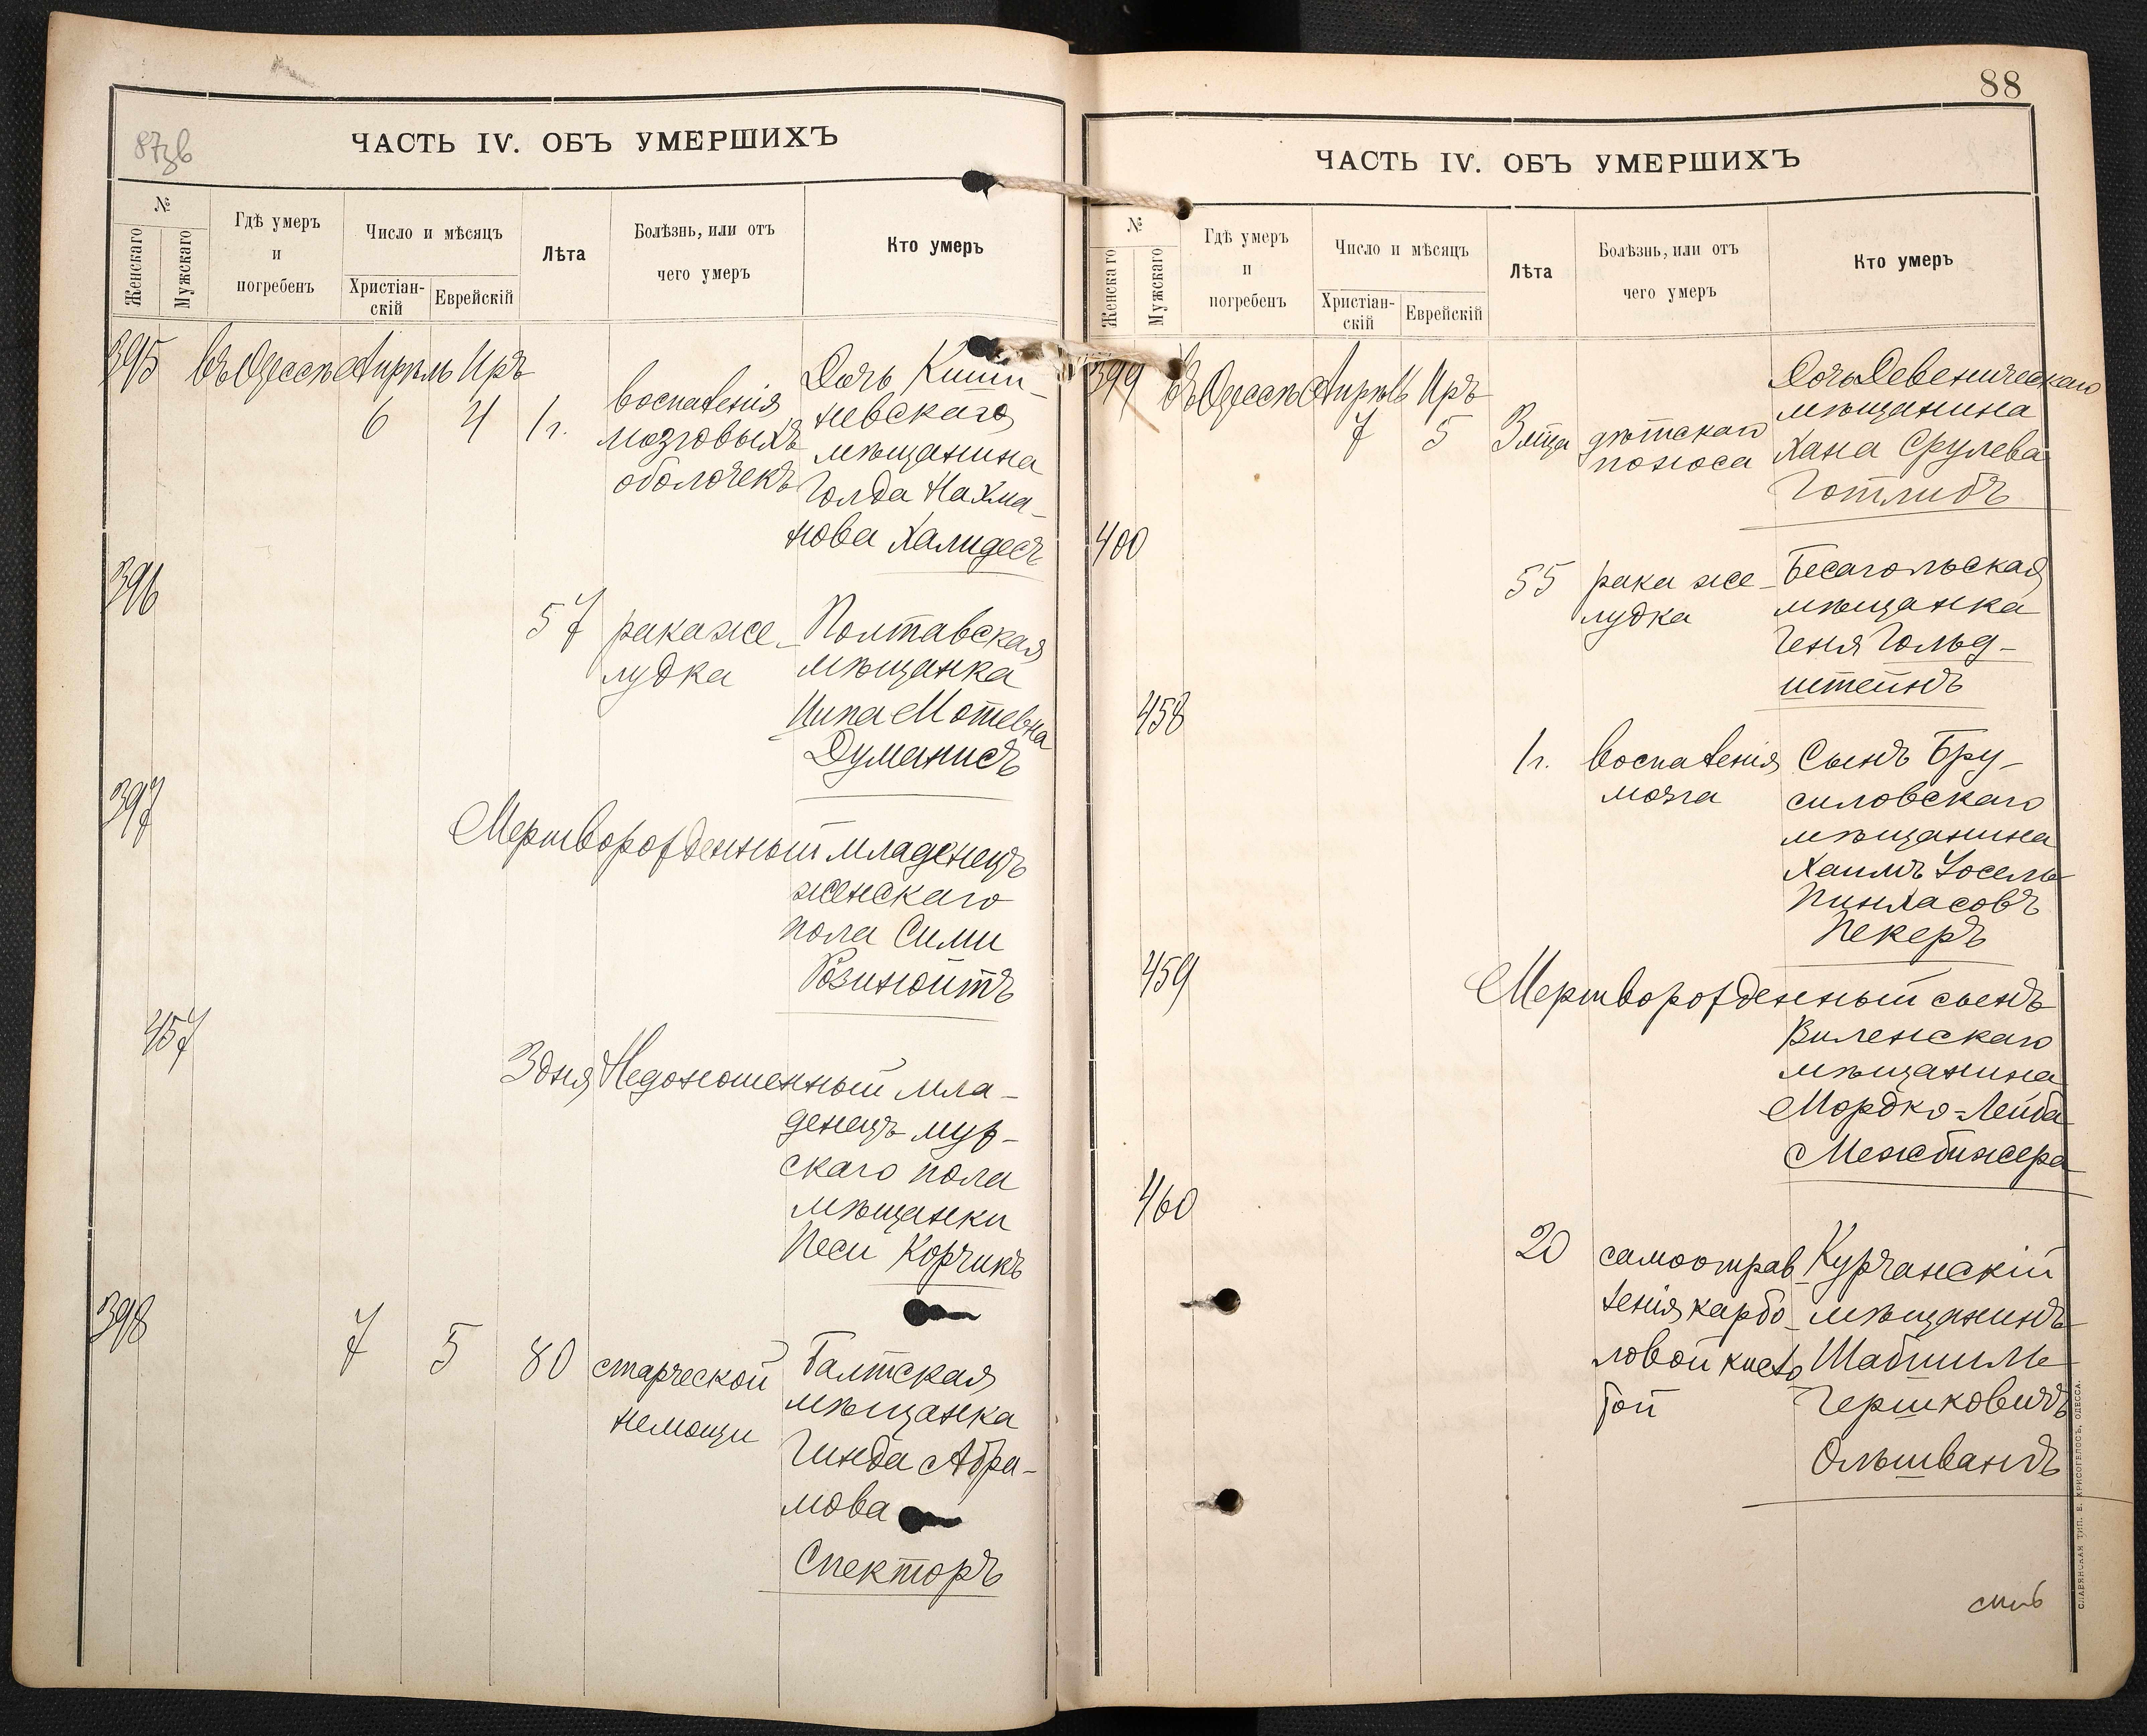 87зв
ЧАСТЬ IV. ОБЪ УМЕРШИХЪ
№
Женскаго
Мужскаго
Гдѣ умеръ
и
погребенъ
Число и мѣсяцъ
Христіан-
скій
Еврейскій
Лѣта
Болѣзнь, или отъ
чего умеръ
Кто умеръ
395 въ Одессѣ Апрѣль Иръ
6 4 1г.
воспаленія
мозговыхъ
оболочекъ
Дочь Киши-
невскаго
мѣщанина
Голда Нахма-
нова Халидесъ
396
57 рака же-
лудка
Полтавская
мѣщанка
Ципа Мотевна
Думанисъ
397
Мертворожденный младенецъ
женскаго
пола Сими
Розинойтъ
457
3 дня Недоношенный мла-
денецъ муж-
скаго пола
мѣщанки
Песи Корчикъ
398
7 5 80 старческой
немощи
Балтская
мѣщанка
Гинда Абра-
мова
Спекторъ
88
ЧАСТЬ IV. ОБЪ УМЕРШИХЪ
№
Женскаго
Мужскаго
Гдѣ умеръ
и
погребенъ
Число и мѣсяцъ
Христіан-
скій
Еврейскій
Лѣта
Болѣзнь, или отъ
чего умеръ
Кто умеръ
399 въ Одессѣ Апрѣль Иръ
7 5 3 мца дѣтскаго
поноса
Дочь Девеническаго
мѣщанина
Хана Срулева
Готлибъ
400
55 рака же-
лудка
Бесагольская
мѣщанка
Геня Гольд-
штейнъ
458
1г. воспаленія
мозга
Сынъ Бру-
силовскаго
мѣщанина
Хаимъ Іосель
Пинхасовъ
Пекеръ
459
Мертворожденный сынъ
Виленскаго
мѣщанина
Мордко-Лейба
Межбижера
460
20 самоотрав
ленія карбо-
ловой кисло
той
Курчанскій
мѣщанинъ
Шабшиль
Гершковичъ
Ольшвангъ
СЛАВЯНСКАЯ ТИП. Е. ХРИСОГЕЛОСЪ, ОДЕССА.